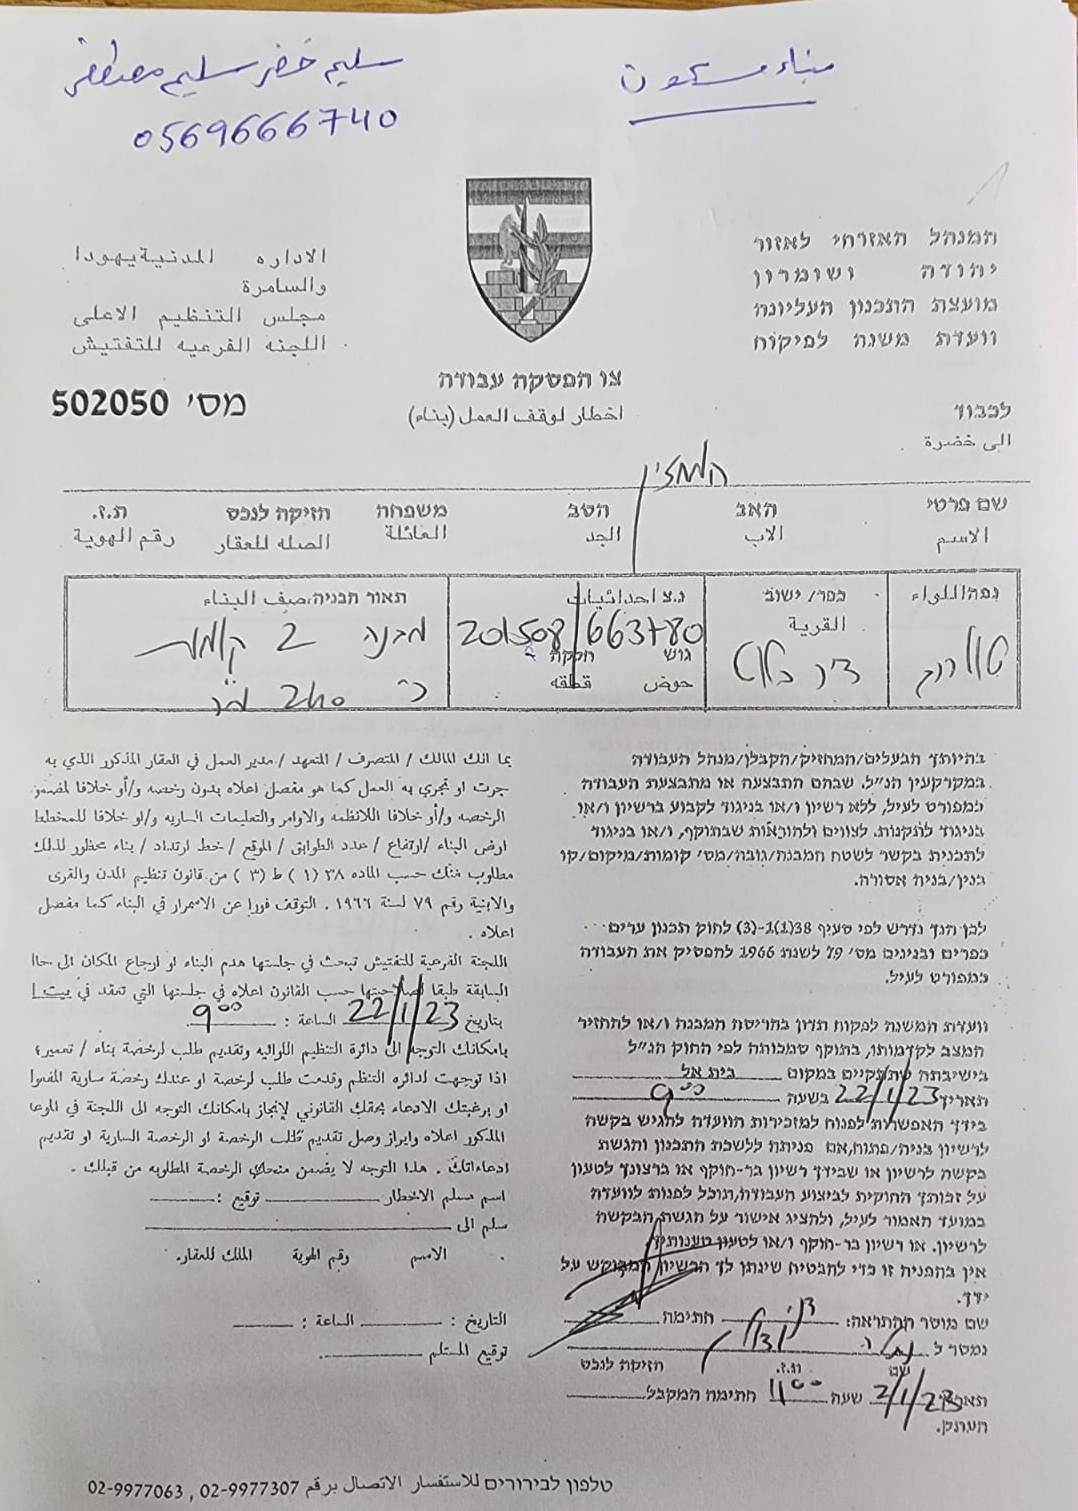 سليم خضر سليم مصطفى
0569666740
بناء مسكون
המנהל האזרחי לאזור
יהודה ושומרון
מועצת התכנון העליונה
וועדת משנה לפיקוח
الاداره المدنية يهودا
والسامرة
مجلس التنظيم الاعلى
اللجنه الفرعيه للتفتيش
צו הפסקה עבודה
اخطار لوقف العمل (بناء)
מס' 502050
לכבוד
الى حضرة
המחזיק
שם פרטי האב הסב משפחה חזיקה לנכס ת.ז.
الاسم الاب الجد العائلة الصله للعقار رقم الهوية
נפה/اللواء כפר/ ישוב נ.צ احداثيات תאור הבניה،صيف البناء
القرية
201508/663780
גוש חלקה
حوض قطقه
טולכרם
מבנה 2 קומות
כ- 240 מ"ר
בהיותך הבעלים/המחזיק/הקבלן/מנהל העבודה
במקרקעין הנ"ל, שבהם התבצעה או מתבצעת העבודה
כמפורט לעיל, ללא רשיון ו/או בניגוד לקבוע ברשיון ו/או
בניגוד לתקנות, לצווים ולהוראות שבתוקף, ו/או בניגוד
לתכנית בקשר לשטח המבנה/גובה/מס' קומות/מיקום/קו
בנין/בניה אסורה.
לכן הנך נדרש לפי סעיף 38(1)ו-(3) לחוק תכנון ערים
כפרים ובנינים מס' 79 לשנת 1966 להפסיק את העבודה
כמפורט לעיל.
וועדת המשנה לפקוח תדון בהריסת המבנה ו/או להחזיר
המצב לקדמותו, בתוקף סמכותה לפי החוק הנ"ל
בישיבתה שתתקיים במקום בית אל
תאריך 22/1/23 בשעה 9:00
בידך האפשרות לפנות למזכירות הוועדה להגיש בקשה
לרשיון בניה/פתוח,אם פניתה ללשכת התכנון והגשת
בקשה לרשיון או שבידך רשיון בר-תוקף או ברצונך לטעון
על זכותך החוקית לביצוע העבודה,תוכל לפנות לוועדה
במועד האמור לעיל, ולהציג אישור על הגשת הבקשה
לרשיון, או רשיון בר-תוקף ו/או לטעון טענותיך.
אין בהפניה זו כדי להבטיח שינתן לך הרשיון המבוקש על
ידך.
שם מוסר ההתראה: חתימה
נמסר ל
שם ת.ז. חזיקה לנכס
תאריך 2/1/23 שעה 11:00 חתימה המקבל
העתק.
بما انك المالك / المتصرف / المتعهد / مدير العمل في العقار المذكور الذي به
جرت او تجري به العمل كما هو مفصل اعلاه بدون رخصه و/أو خلافا لمضمو
الرخصه و/أو خلافا للانظمه والاوامر والتعليمات الساريه و/او خلافا للمخطط
ارض البناء /ارتفاع / عدد الطوابق / الموقع / خط ارتداد / بناء محظور لذلك
مطلوب منك حسب الماده ٣٨ (١) ط (٣) من قانون تنظيم المدن والقرى
والابنية رقم ٧٩ لسنة ١٩٦٦ . التوقف فورا عن الاسمرار في البناء كما مفصل
اعلاه .
اللجنة الفرعية للتفتيش تبحث في جلستها هدم البناء او ارجاع المكان الى حاا
السابقة طبقا لصلاحيتها حسب القانون اعلاه في جلستها التي تعقد في بيت ا
بتاريخ 22/1/23 الساعة : 9:00
بامكانك التوجه الى دائرة التنظيم اللوائيه وتقديم طلب لرخصة بناء / تعمير؛
اذا توجهت لدائره التنظم وقدمت طلب لرخصة او عندك رخصة سارية المفعوا
او برغبتك الادعاء بحقك القانوني لإنجاز بامكانك التوجه الى اللجنة في الموعا
المذكور اعلاه وابراز وصل تقديم طلب الرخصة او الرخصة السارية او تقديم
ادعاءاتك . هذا التوجه لا يضمن منحك الرخصة المطلوبه من قبلك .
اسم مسلم الاخطار توقيع :
سلم الى
الاسم رقم الهوية المالك للعقار.
التاريخ : الساعة :
توقيع المستلم
טלפון לבירורים للاستفسار الاتصال برقم 02-9977307 , 02-9977063